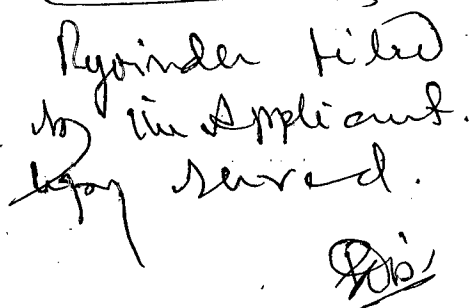 Rejoinder filed
by the Applicant.
Copy served.